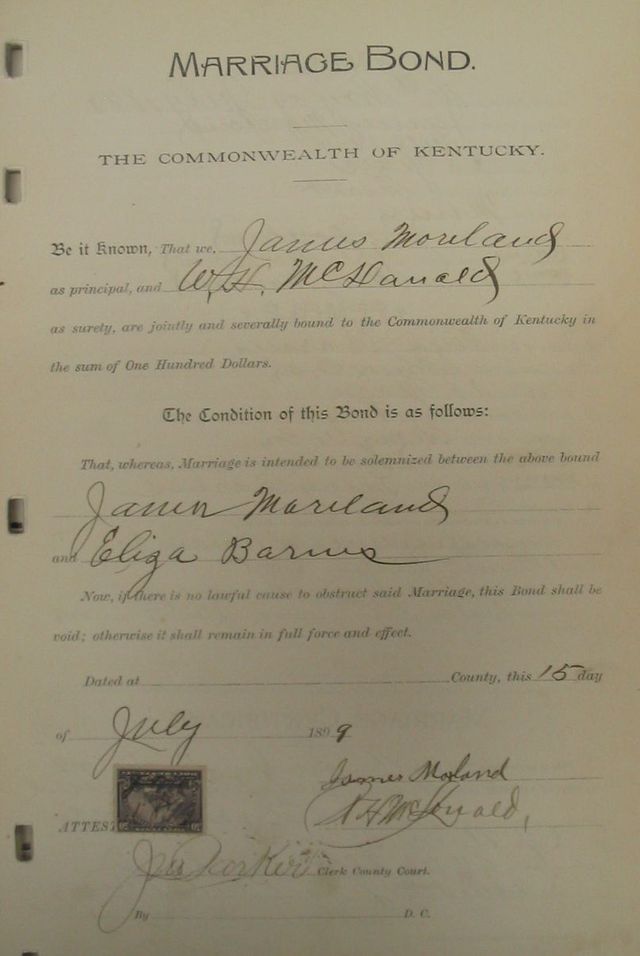 MARRIAGE BOND.
THE COMMONWEALTH OF KENTUCKY.
Be it Known, That we, James Moreland
as principal, and W. H. McDonald
as surety, are jointly and severally bound to the Commonwealth of Kentucky in
the sum of One Hundred Dollars.
The Condition of this Bond is as follows:
That, whereas, Marriage is intended to be solemnized between the above bound
James Moreland
and Eliza Barnes
Now, if there is no lawful cause to obstruct said Marriage, this Bond shall be
void; otherwise it shall remain in full force and effect.
Dated at County, this 15 day
of July 1899
James Moland
McDonald,
ATTEST
Clerk County Court.
By D. C.